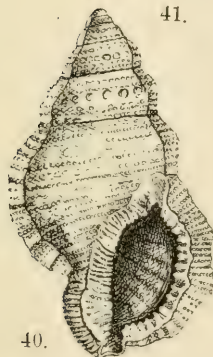 41.
40.